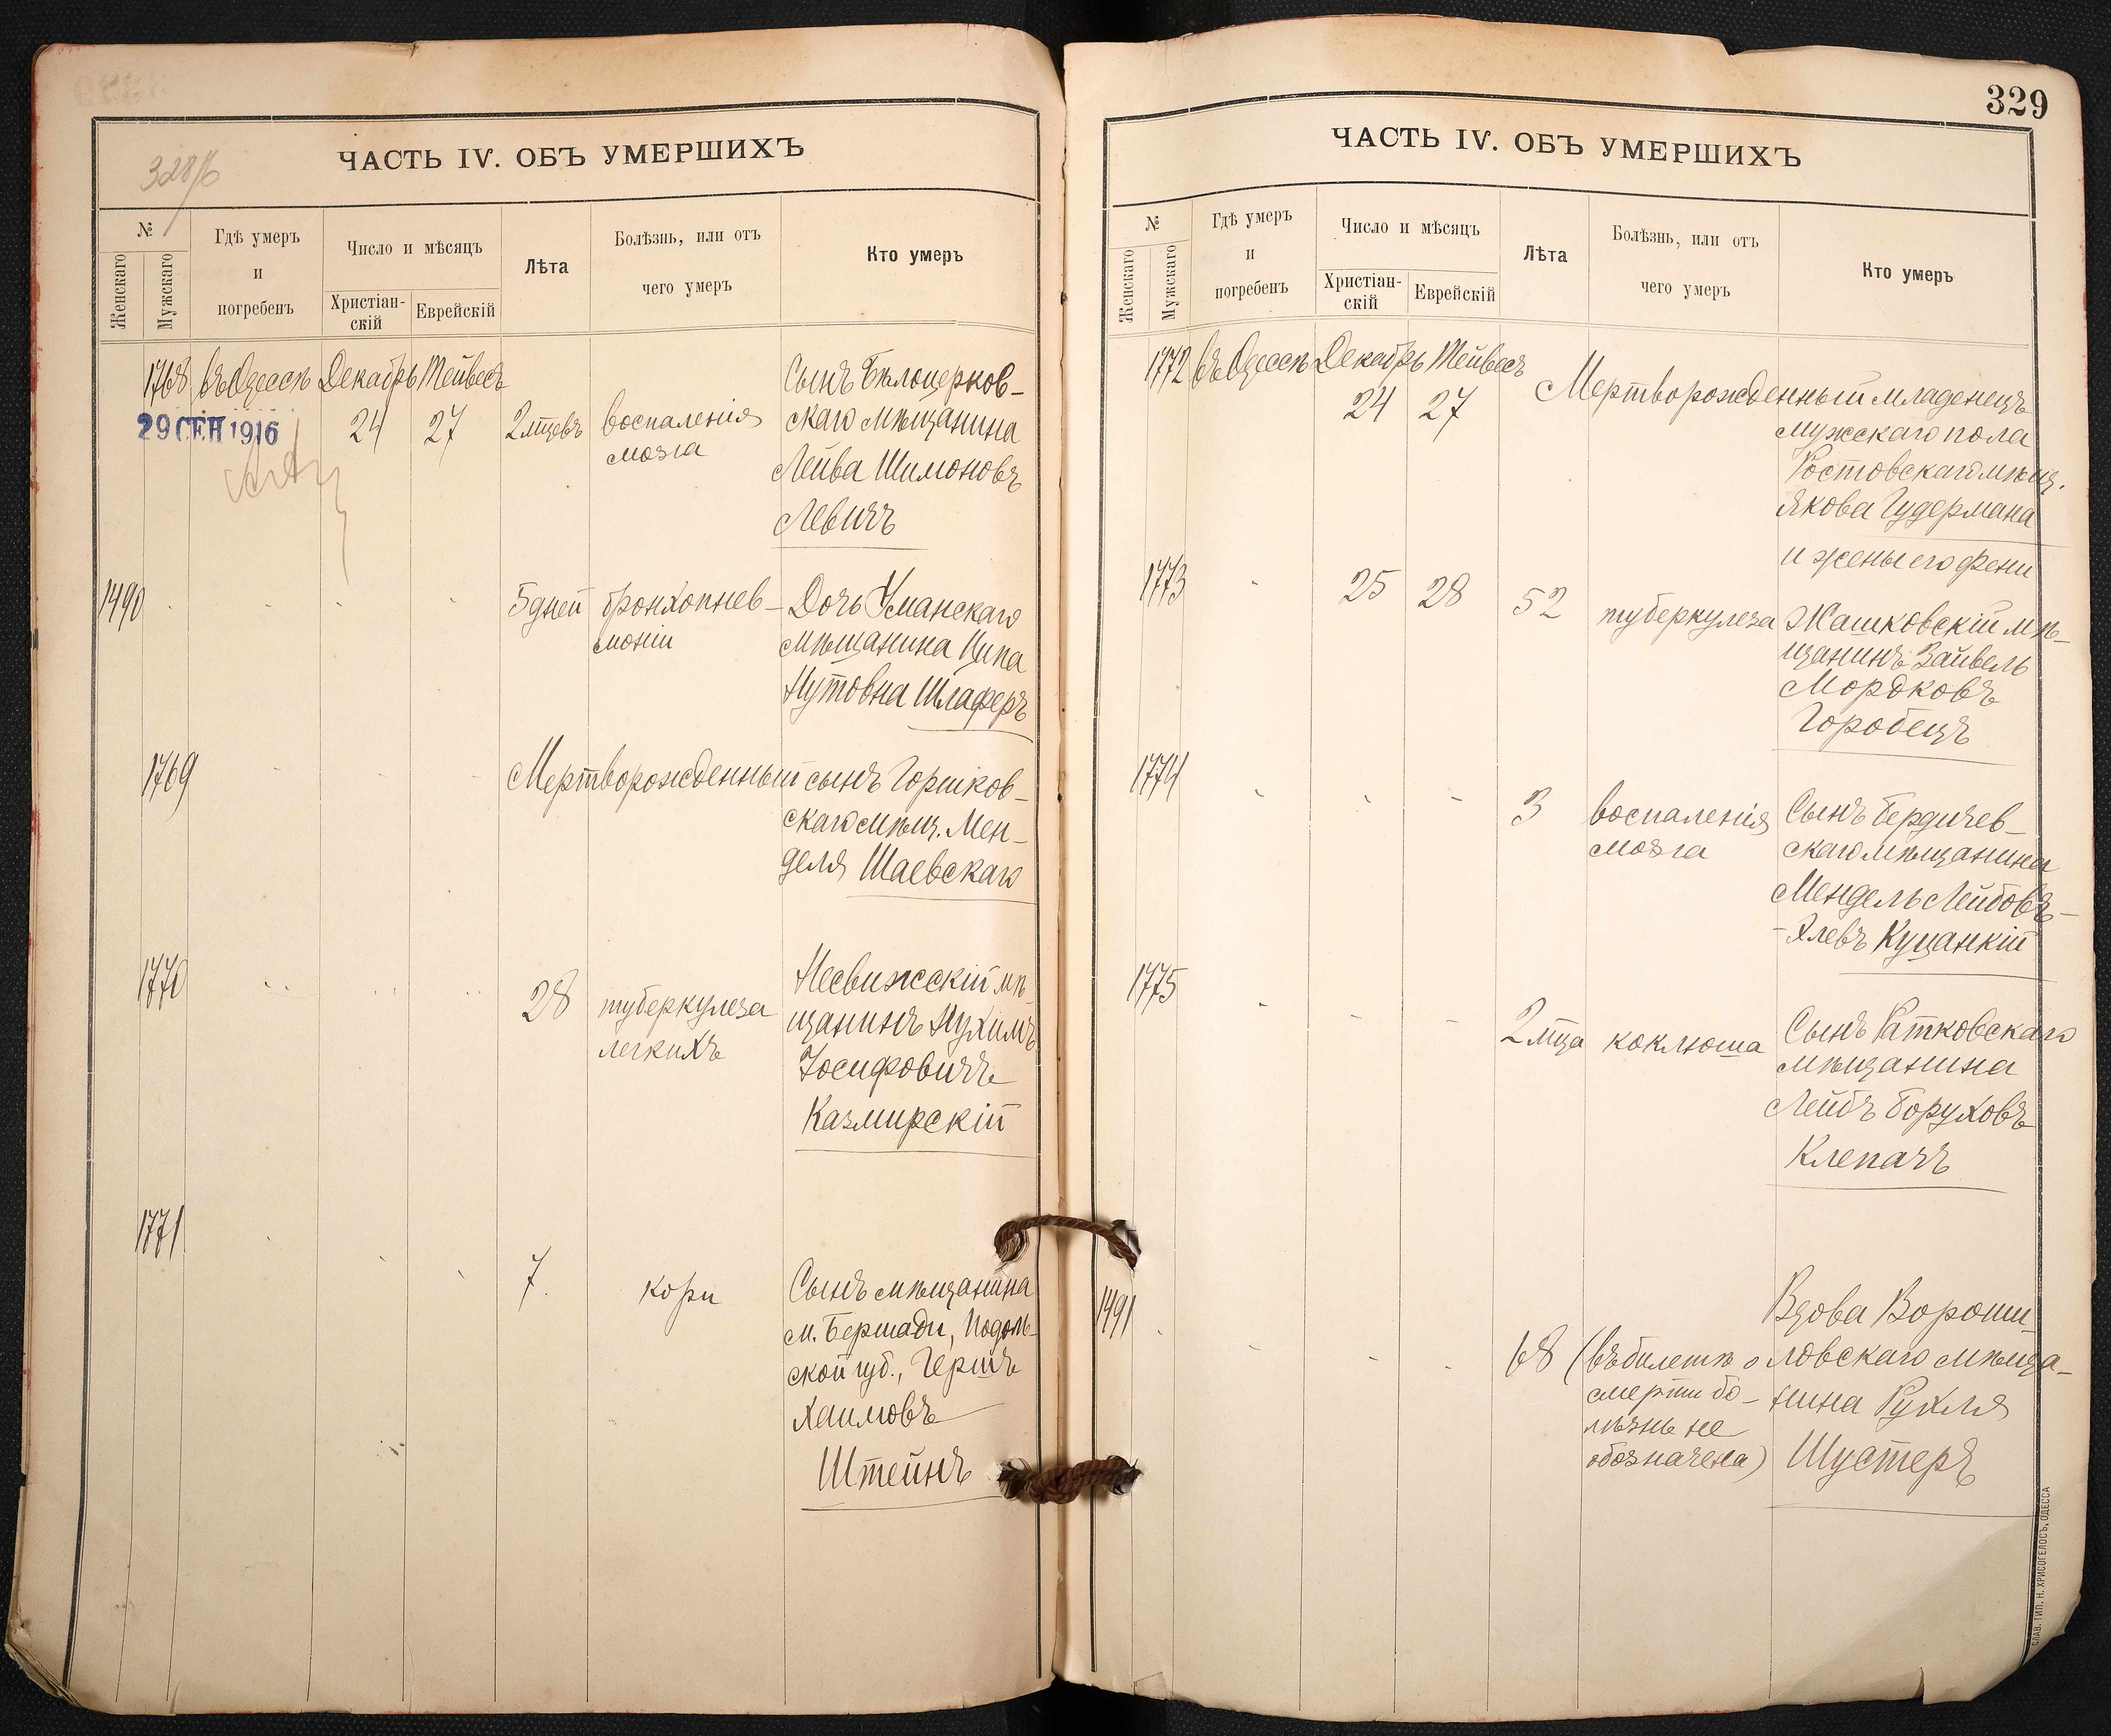 328/б
ЧАСТЬ IV. ОБЪ УМЕРШИХЪ
№
Женскаго
Мужскаго
Гдѣ умеръ
и
погребенъ
Число и мѣсяцъ
Христіан-
скій
Еврейскій
Лѣта
Болѣзнь, или отъ
чего умеръ
Кто умеръ
1768 въ Одессѣ Декабрь Тейвесъ Сынъ Бѣлоцерков-
29 СЕН 1916 24 27 2 мцевъ воспаленія скаго мѣщанина
мозга Лейва Шимоновъ
Левичъ
1490 5 дней бронхопнев- Дочь Уманскаго
моніи мѣщанина Ципа
Нутовна Шлаферъ
1769 Мертворожденный сынъ Горшков-
скаго мѣщ. Мен-
деля Шаевскаго
1770 28 туберкулеза Несвижсскій мѣ-
легкихъ щанинъ Нухимъ
Іосифовичъ
Казмирскій
1771 7 кори Сынъ мѣщанина
м. Бершади, Подоль-
ской губ., Гершъ
Хаимовъ
Штейнъ
329
ЧАСТЬ IV. ОБЪ УМЕРШИХЪ
№
Женскаго
Мужскаго
Гдѣ умеръ
и
погребенъ
Число и мѣсяцъ
Христіан-
скій
Еврейскій
Лѣта
Болѣзнь, или отъ
чего умеръ
Кто умеръ
1772 въ Одессѣ Декабрь Тейвесъ
24 27 Мертворожденный младенецъ
мужескаго пола
Ростовскаго мѣщ.
Якова Гудермана
и жены его Фени
1773 25 28 52 туберкулеза Жашковскій мѣ-
щанинъ Зайвель
Мордковъ
Горобецъ
1774 3 воспаленія Сынъ Бердичев-
мозга скаго мѣщанина
Мендель Лейбовъ-
-Алевъ Куцанкій
1775 2 мца коклюша Сынъ Ратковскаго
мѣщанина
Лейбъ Боруховъ
Клепачъ
1491 Вдова Вороши-
68 (въ билетѣ о ловскаго мѣща-
смерти бо- нина Рухля
лѣзнь не
обозначена) Шустеръ
СЛАВ. ТИП. Н. ХРИСОГЕЛОСЪ, ОДЕССА